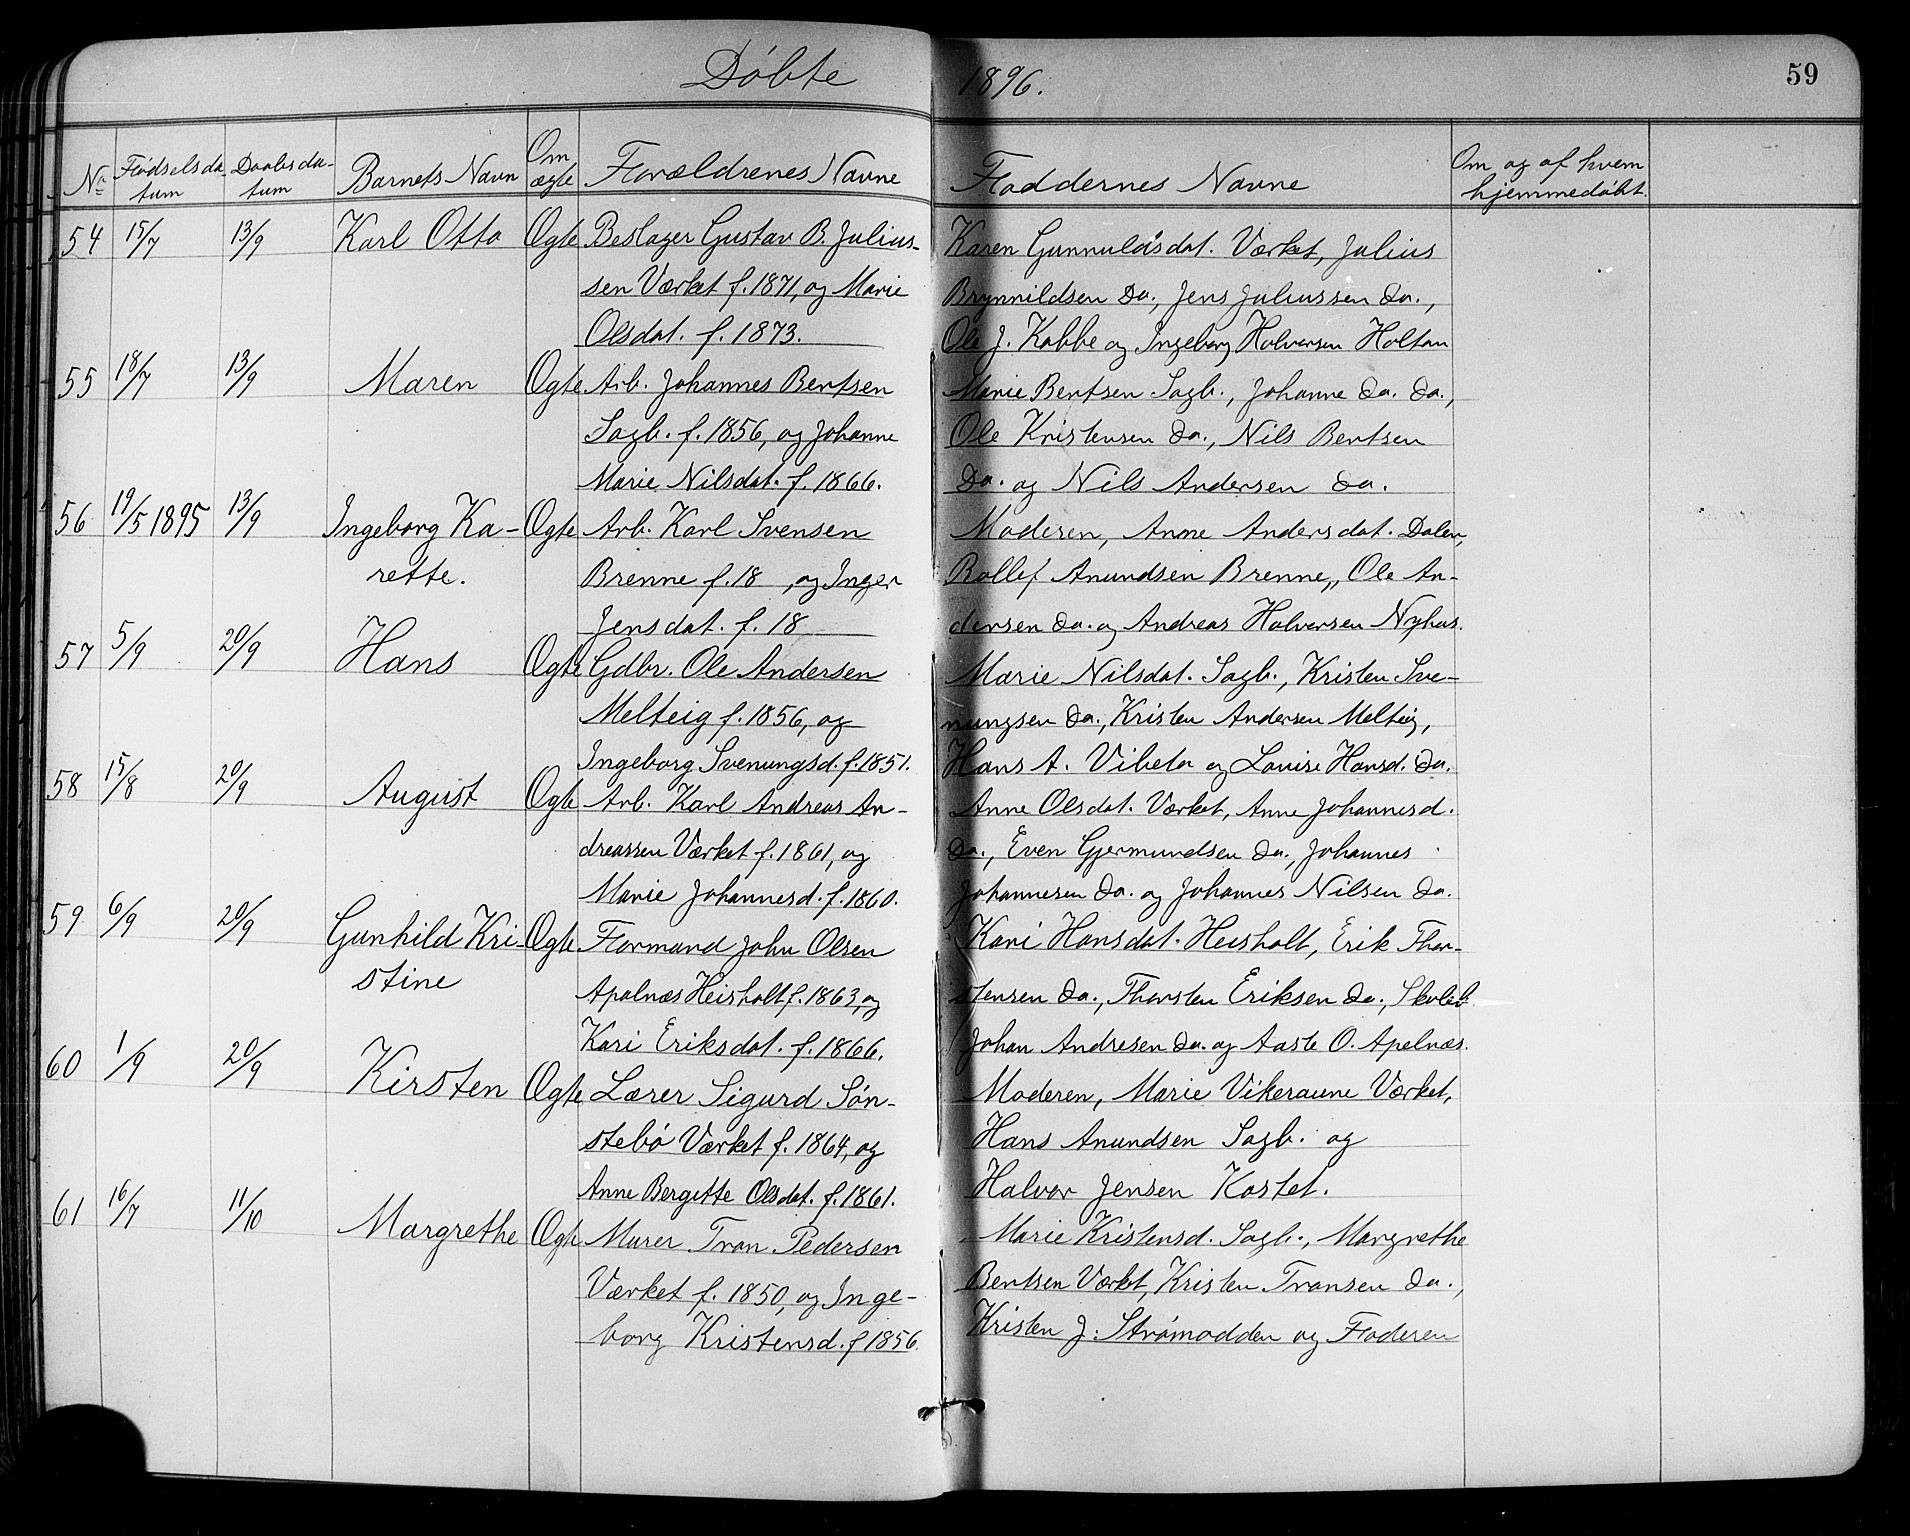 Döbte 1896.
59
No
Födselsda-
tum
Daabsda-
tum
Barnets Navn
Om
ægte
Forældrenes Navne
Faddernes Navne
Om og af hvem
hjemmedöbt.
54 15/7 13/9 Karl Otto Ogte Beslager Gustav B. Julius-
sen Værket f. 1871, og Marie
Olsdat. f. 1873.
Karen Gunnulasdat. Værket, Julius
Brynnildsen do., Jens Juliussen do.,
Ole J. Kabbe og Ingeborg Halversen Holtan
55 18/7 13/9 Maren Ogte Arb. Johannes Bentsen
Sagb. f. 1856, og Johanne
Marie Nilsdat. f. 1866.
Marie Bentsen Sagb., Johanne do. do.,
Ole Kristensen do., Nils Bentsen
do. og Nils Andersen do.
56 19/5 1895 13/9 Ingeborg Ka-
rette. Ogte Arb. Karl Svensen
Brenne f. 18 , og Inger
Jensdat. f. 18
Moderen, Anne Andersdat. Dalen,
Rollef Anundsen Brenne,, Ole An-
dersen do. og Andreas Halversen Nyhus.
57 5/9 20/9 Hans Ogte Gdbr. Ole Andersen
Melteig f. 1856, og
Ingeborg Svenungsd. f. 1851.
Marie Nilsdat. Sagb., Kristen Sve-
nungsen do., Kristen Andersen Melteig,
Hans A. Viheta og Louise Hansd. do.
58 15/8 20/9 August Ogte Arb. Karl Andreas An-
dreassen Værket f. 1861, og
Marie Johannesd. f. 1860.
Anne Olsdat. Værket, Anne Johannesd.
do., Even Gjermundsen do., Johannes
Johannesen do. og Johannes Nilsen do.
59 6/9 20/9 Gunhild Kri-
stine Ogte Formand John Olsen
Apalnæs Heisholt f. 1863, og
Kari Eriksdat. f. 1866.
Kari Hansdat. Heisholt, Erik Thor-
stensen do., Thorsten Eriksen do., Skoleb.
Johan Andresen do. og Aaste O. Apelnæs.
60 1/9 20/9 Kirsten Ogte Lærer Sigurd Sön-
stebö Værket f. 1864, og
Anne Bergitte Olsdat. f. 1861.
Moderen, Marie Vikeraune Værket,
Hans Anundsen Sagb. og
Halvor Jensen Kastet.
61 16/7 11/10 Margrethe Ogte Murer Tran Pedersen
Værket f. 1850, og Inge-
borg Kristensd. f 1856.
Marie Kristensd. Sagb., Margrethe
Bentsen Værket, Kristen Transen do.,
Kristen J. Strömodden og Faderen